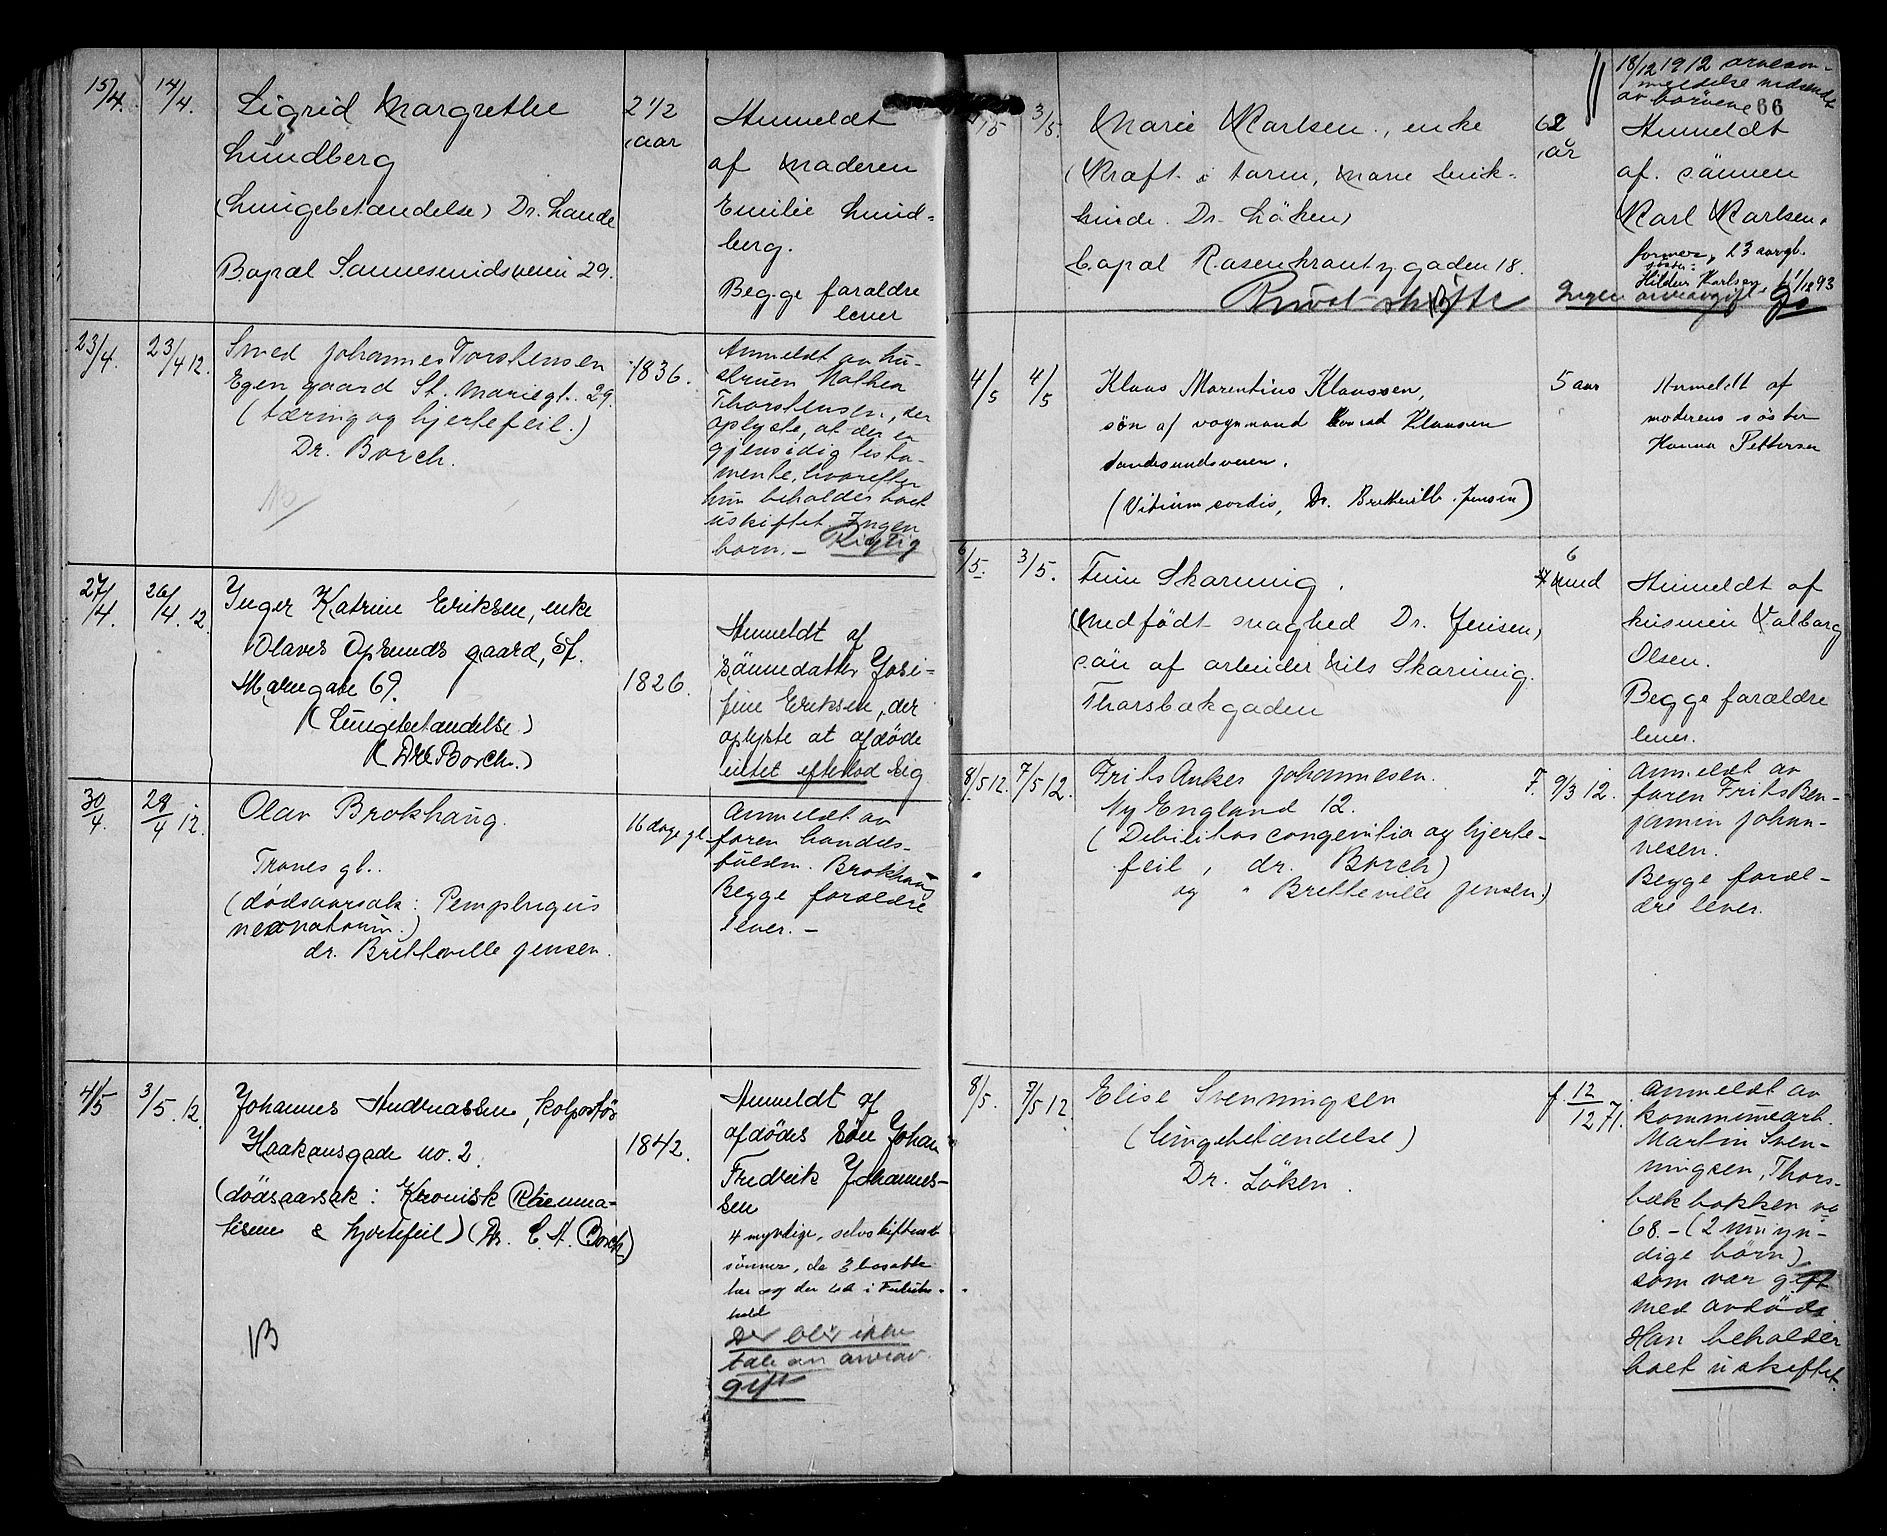 15/4. 14/4. Sigrid Margrethe
Lundberg
(Lungebetændelse) Dr. Lande
Bopæl Sannesundsveien 29.
2 1/2
aar
Anmeldt
af moderen
Emilie Lund-
berg.
Begge forældre
lever
23/4. 23/4 12. Smed Johannes Torstensen
Egen gaard St. Mariegt. 29.
(tæring og hjertefeil.)
Dr. Borch.
1836.
Anmeldt av hu-
struen Mathea
Thorstensen, der
oplyste, at der er
gjensidig testa-
mente, hvorefter
hun beholder boet
uskiftet. Ingen
born. – Rigtig
27/4. 26/4. 12. Inger Katrine Eriksen, enke
Olaves Opsunds gaard, St.
Mariegate 69.
(Lungebetændelse)
(Dr. Borch.)
1826.
Anmeldt af
sønnedatter Josi-
fine Eriksen, der
oplyste at afdøde
intet efterlod sig
30/4. 28/4 12. Olav Brokhaug.
Tranes gt..
(dødsaarsak: Pemphigus
neonatorum.)
dr. Bretteville Jensen.
16 dage gl.
Anmeldt av
faren handels-
fuldm. Brokhaug
Begge forældre
lever. –
4/5 3/5. 12. Johannes Andreassen, kolportør
Haakonsgade no. 2.
(dødsaarsak: Kronisk Rheuma-
tisme & hjertefeil) (Dr. C. A. Borch)
B
1842.
Anmeldt af
afdødes søn Johan
Fredrik Johannes-
sen
4 myndige, selvskiftende
sønner, de 3 bosatte
her og den ene i Fredriks-
hald
Der blir ikke
tale om arveav-
gift
18/12 1912 arvean-
meldelse nedsendt
av børnene 66
/5 3/5. Marie Karlsen, enke
(Kræft i tarm, mave
Dr. Løken)
bopæl Rosenkrantzgaden 18.
Privat skifte
62
år
Anmeldt
af sønnen
Karl Karlsen,
former, 23 aar gl.
søster:
Hildur Karlsen, f. 1/1 93
Ingen arveavgift
4/5 4/5 Klaus Marentius Klaussen,
søn af vognmand Konrad Klausen
Sandesundsveien.
(Vitium cordis, Dr. Bretteville Jensen)
5 aar
Anmeldt af
moderens søster
Hanna Pettersen
6/5. 3/5. Finn Skarning.
(Medfødt svaghed Dr. Jensen)
søn af arbeider Nils Skarning.
Thorsbækgaden
6
mnd
Anmeldt af
Valborg
Olsen.
Begge forældre
lever.
8/5 12. 7/5 12. Frits Anker Johannesen.
Ny England 12.
(Debilitas congenitia og hjerte-
feil, dr. Borch)
og " Bretteville Jensen)
F. 9/3 12.
Anmeldt av
faren Frits Ben-
jamin Johan-
nesen.
Begge foræl-
dre lever.
8/5. 7/5 12. Elise Svenningsen
(lungebetændelse)
Dr. Løken.
f. 12/12 71.
Anmeldt av
kommunearb.
Martin Sven-
ningsen, Thors-
bækbakken no
68. – (2 umyn-
dige børn)
som var gift
med avdøde
Han beholder
boet uskiftet.